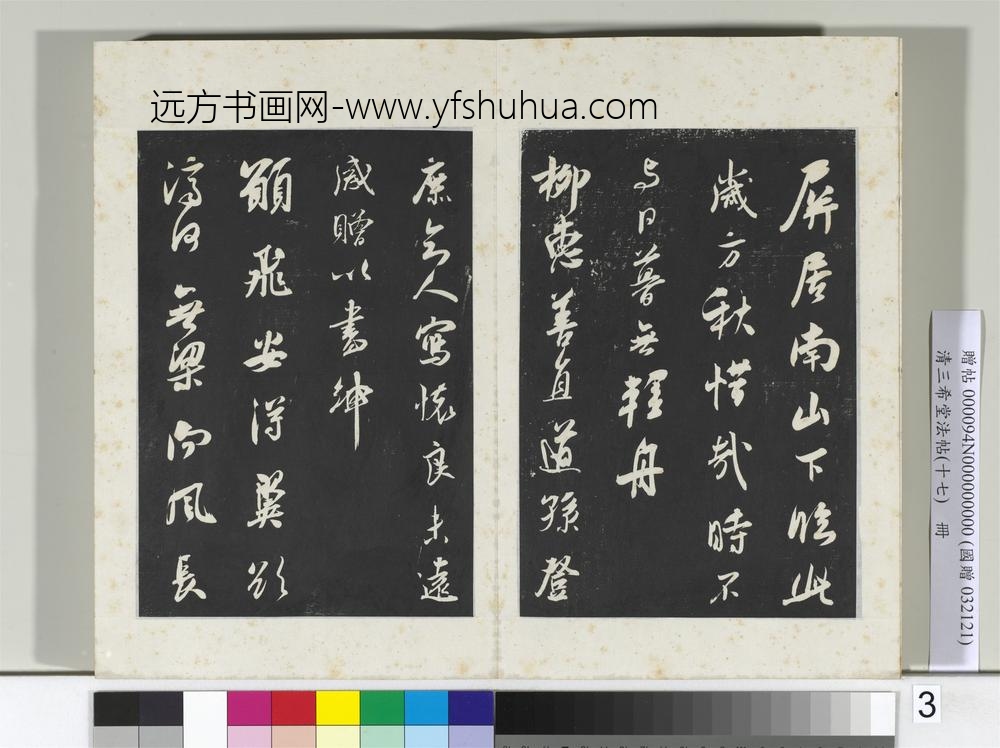 远方书画网-www.yfshuhua.com
屏居南山下臨此
歲方秋惜哉時不
与日暮無輕舟
柳惠善直道孫登
庶知人寫懷良未遠
感贈以書紳
願飛安得翼欲
濟河無梁向風長
贈帖 000094N000000000 (國贈 032121)
清三希堂法帖(十七) 冊
3